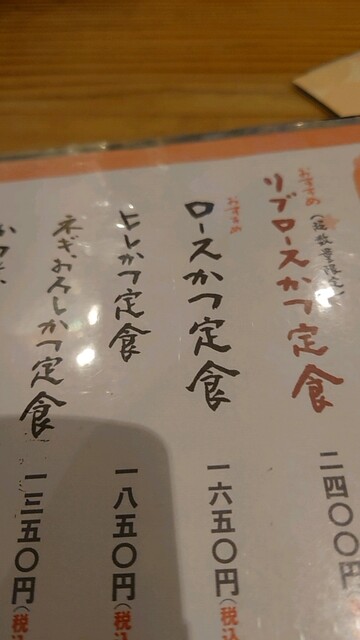 おすすめ
リブロースかつ定食
(超数量限定)
二四〇〇円
おすすめ
ロースかつ定食
一六五〇円(税込
ヒレかつ定食
一八五〇円(税込
ネギおろしかつ定食
一三五〇円(税
かつ